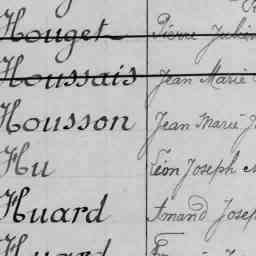 Houget Pierre Julien
Houssais Jean Marie
Housson Jean Marie J
Hu Léon Joseph
Huard Amand Josep
Huard